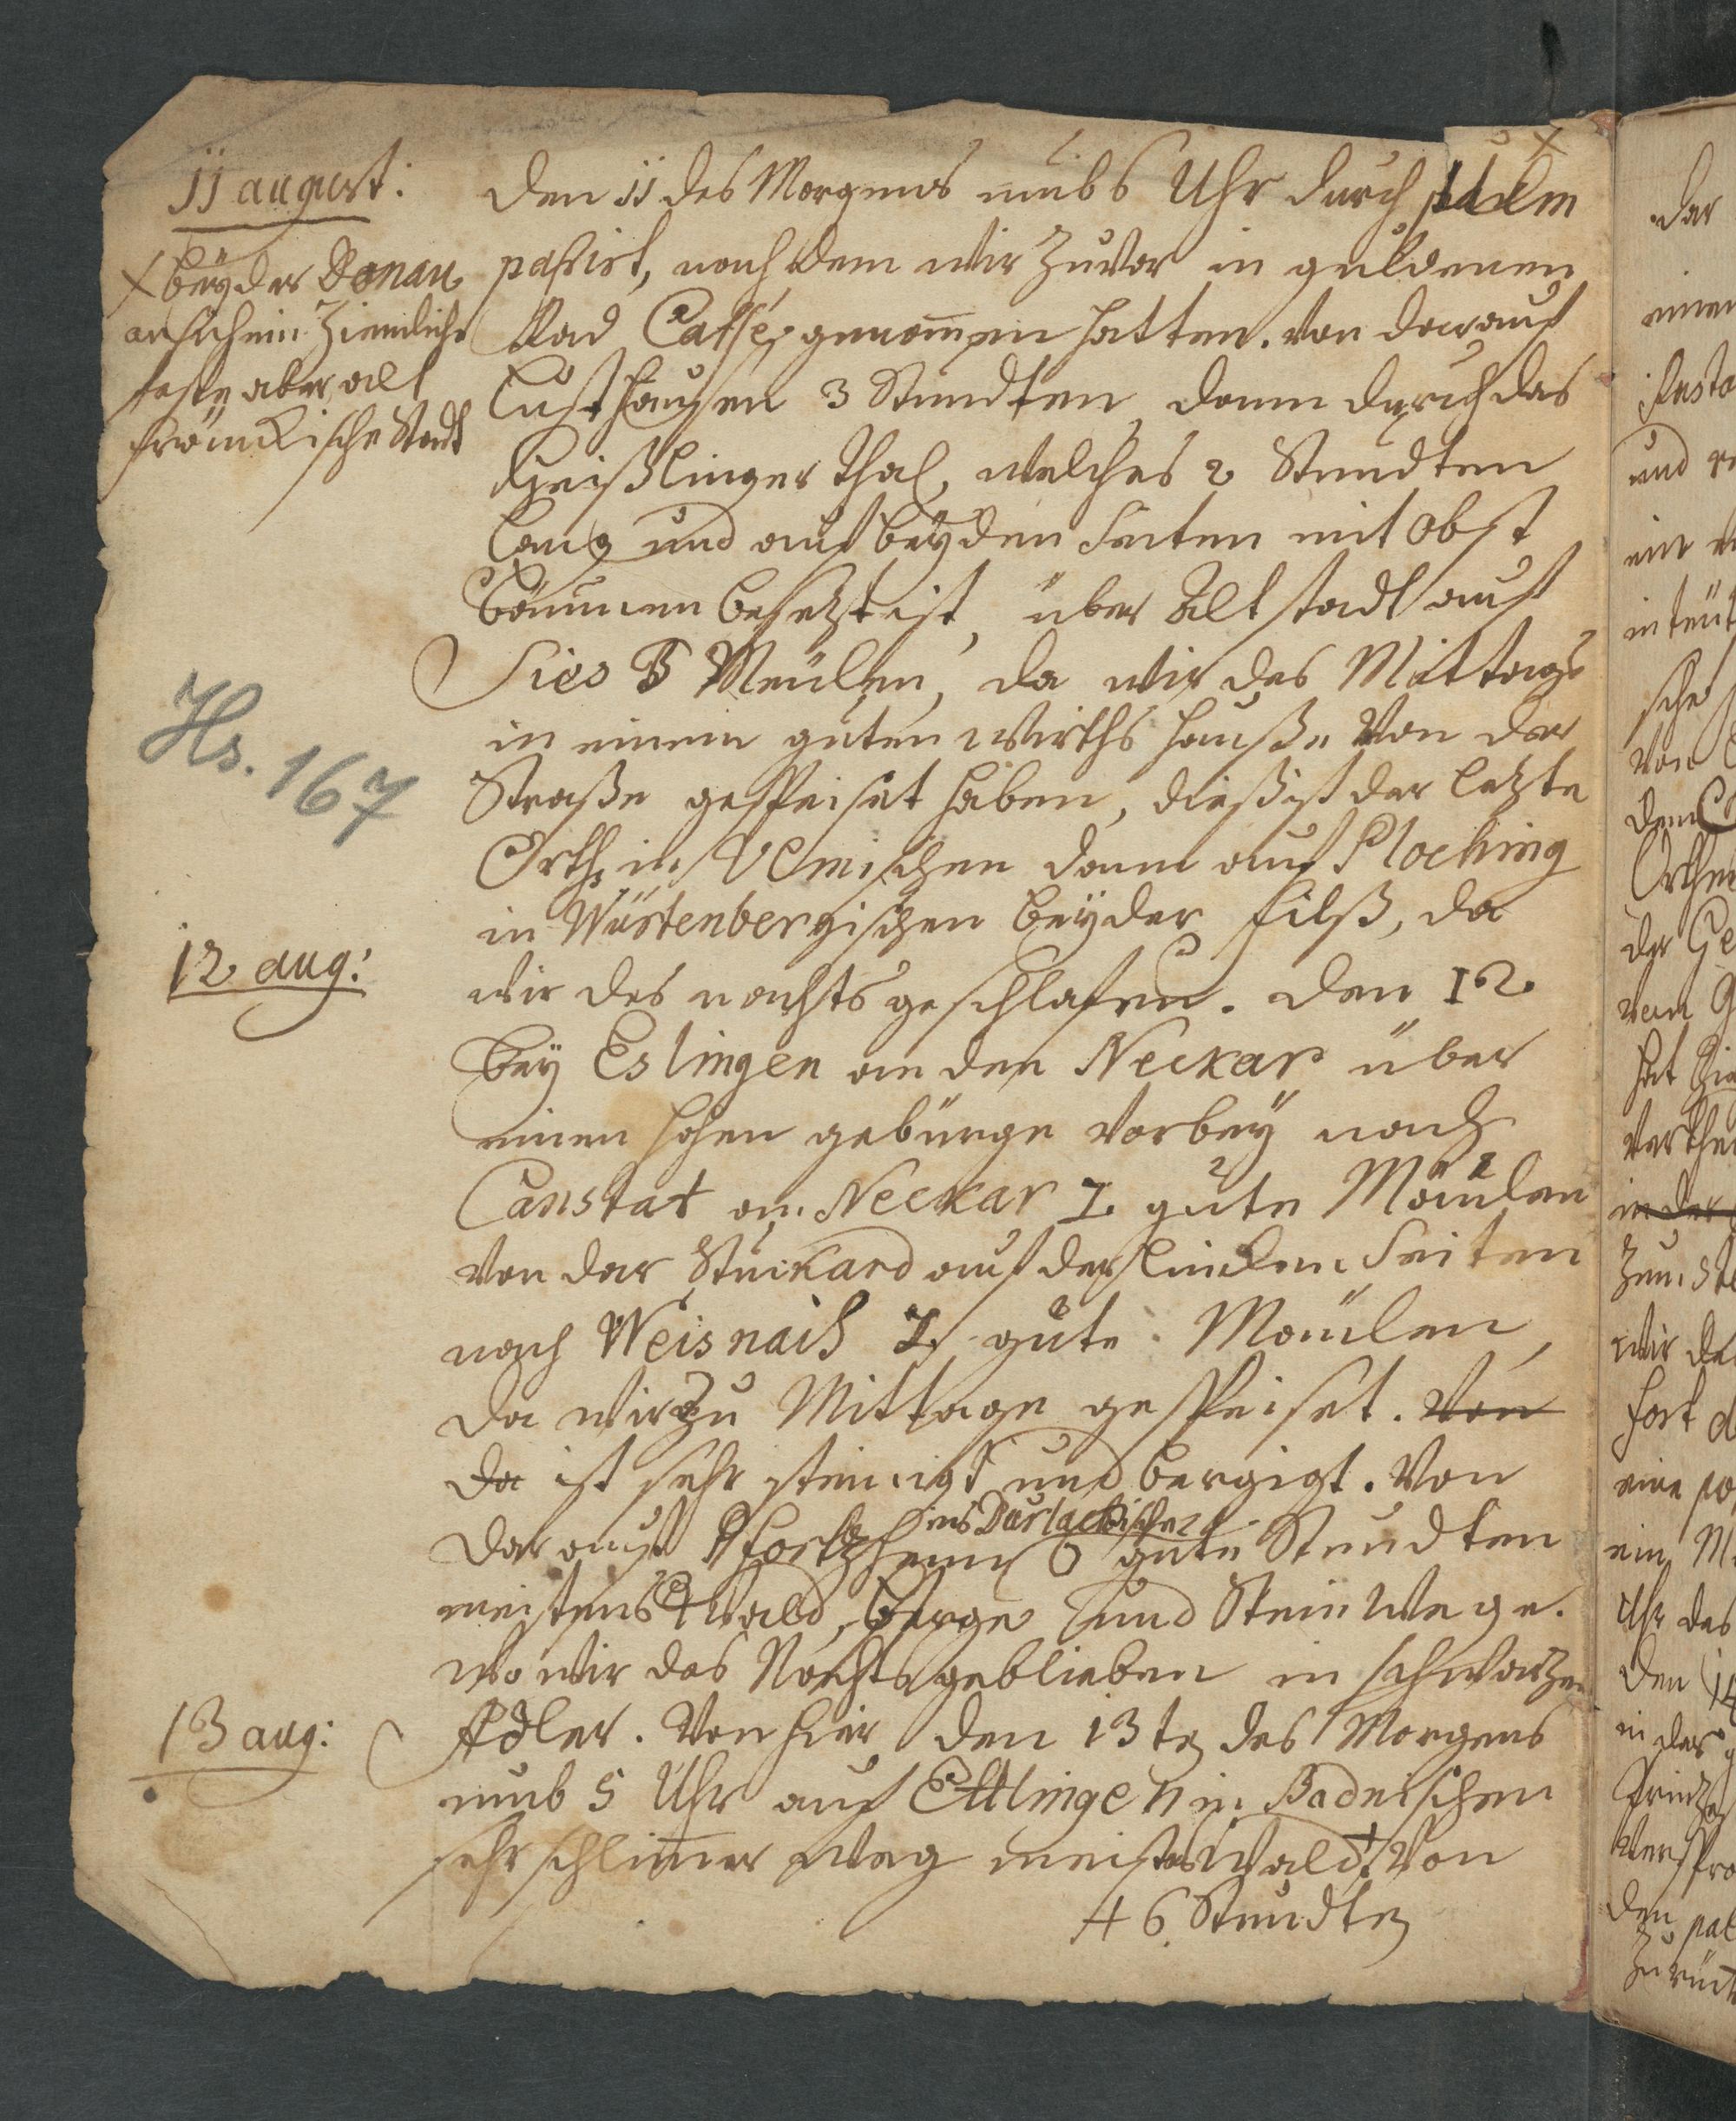 11 august:
+ bey der Donau
an sich ein ziemliche
feste aber alt
fränckische Stadt
Hs. 167
12 aug:
13 aug:
den 11 des Morgens umb 6 Uhr durch Ulm +
passirt, nach dem wir zuvor in guldenen
Rad Caffé genom̅en hatten. von dar auf
Lusthausen 3 Stundten, dann durch das
Geißlinger Thal, welches 2 Stundten
lang und auf beyden Seiten mit Obst
bäumen besetzt ist, über Altstadt auf
Sies 3 Meülen, da wir des Mittags
in einem guten Wirths hauße von der
Straße gespeiset haben, dieß ist der letzte
Orth in Ulmischen dann auf Ploching
in Würtenbergischen bey der Filß, da
wir des nachts geschlafen. den 12
bey Eslingen an den Neckar über
einen hohen gebürge vorbey nach
Canstat am Neckar 1. gute Mäülen
von dar Stuckard auf der lincken Seiten
nach Weisnaich gute Mäülen,
da wir zu Mittage gespeiset. von
da ist sehr steinigt und bergigt. Von
dar auf Pfortzheim ins Durlachische 6 gute Stundten
meistens Wald, berge und Steinwege.
wo wir das Nachts geblieben in schwarzen
Adler. Von hier den 13te des Morgens
umb 5 Uhr auf Ettlingen in Badnischen
sehr schlim̅er Weg meistens Wald + Von
+ 6 Stundte
dar
einen
und
ein
sche
von
Orthe
der Ge
hat
in der
wir
fort
eine
ein
Uhr des
den 14
in der
den